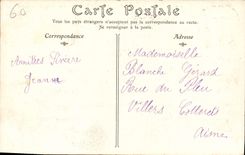 60
Carte Postale
Tous les pays étrangers n'acceptent pas la correspondance au recto.
Se renseigner à la poste.
Correspondance
Adresse
Amitiés Sincère
Jeanne
Mademoiselle
Blanche Gérard
Rue du
Villers Cotterets
Aisne